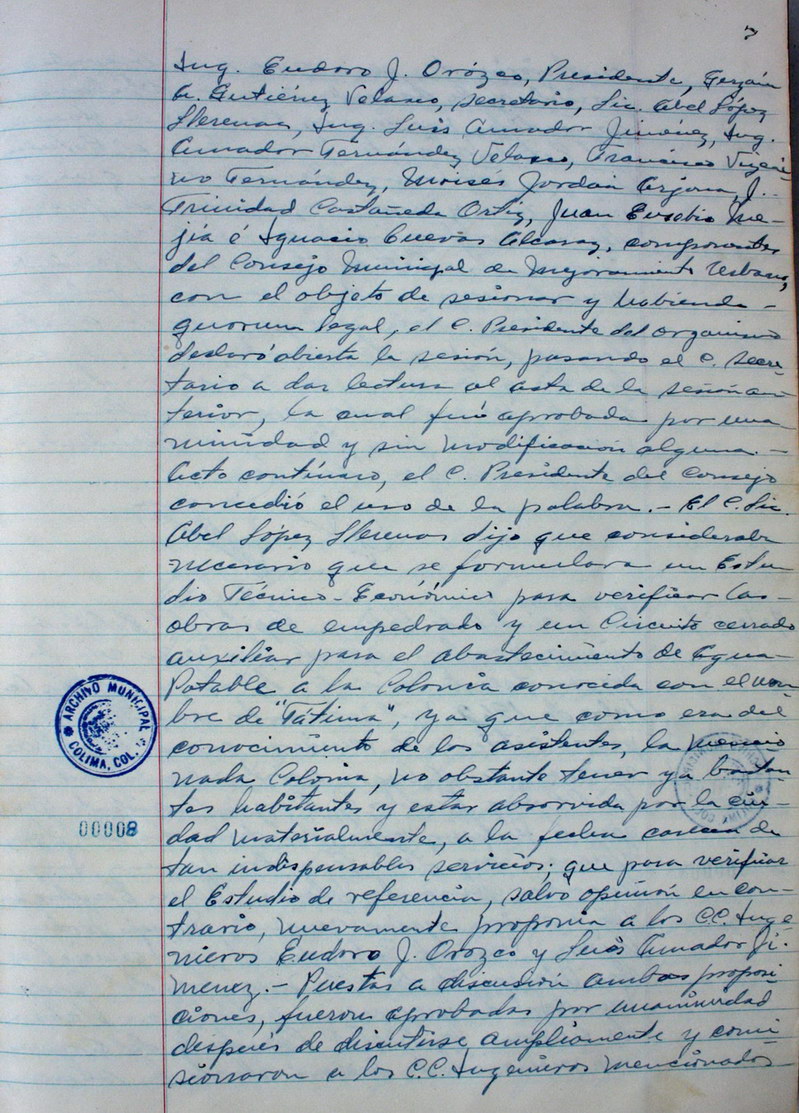 7
Ing. Eudoro J. Orózco, Presidente, Gerzaín
A. Gutiérrez Velasco, secretario, Lic. Abel López
Llerenas, Ing. Luis Amador Jiménez, Ing.
Amador Fernández Velasco, Francisco
Fernández, Moisés Jordán Arjona, J.
Trinidad Castañeda Ortiz, Juan Eusebio Me-
jía é Ignacio Cuevas Alcaraz, componentes
del Consejo Municipal de Mejoramiento Urbano,
con el objeto de sesionar y habiendo -
quorum legal, el C. Presidente del organismo
declaró abierta la sesión, pasando el C. Secre-
tario a dar lectura al acta de la sesión an-
terior, la cual fué aprobada por una
nimidad y sin modificación alguna. -
Acto contínuo, el C. Presidente del Consejo
concedió el uso de la palabra. - El C. Lic.
Abel López Llerenas dijo que consideraba
necesario que se formulara un Estu-
dio Técnico-Económico para verificar las -
obras de empedrado y un Circuito cerrado
auxiliar para el abastecimiento de Agua -
Potable a la Colonia conocida con el nom-
bre de "Fátima", ya que como era del
conocimiento de los asistentes, la mencio
nada Colonia, no obstante tener ya bastan
tes habitantes y estar absorvida por la ciu-
dad materialmente, a la fecha carecen de
tan indispensables servicios; que para verificar
el Estudio de referencia, salvo opinión en con-
trario, nuevamente proponía a los C.C. Inge
nieros Eudoro J. Orozco y Luis Amador Ji-
menez. - Puestas a discusión ambas proposi
ciones, fueron aprobadas por unanimidad
después de discutirse ampliamente y comi
sionaron a los C.C. Ingenieros mencionados
ARCHIVO MUNICIPAL
COLIMA, COL.
00008